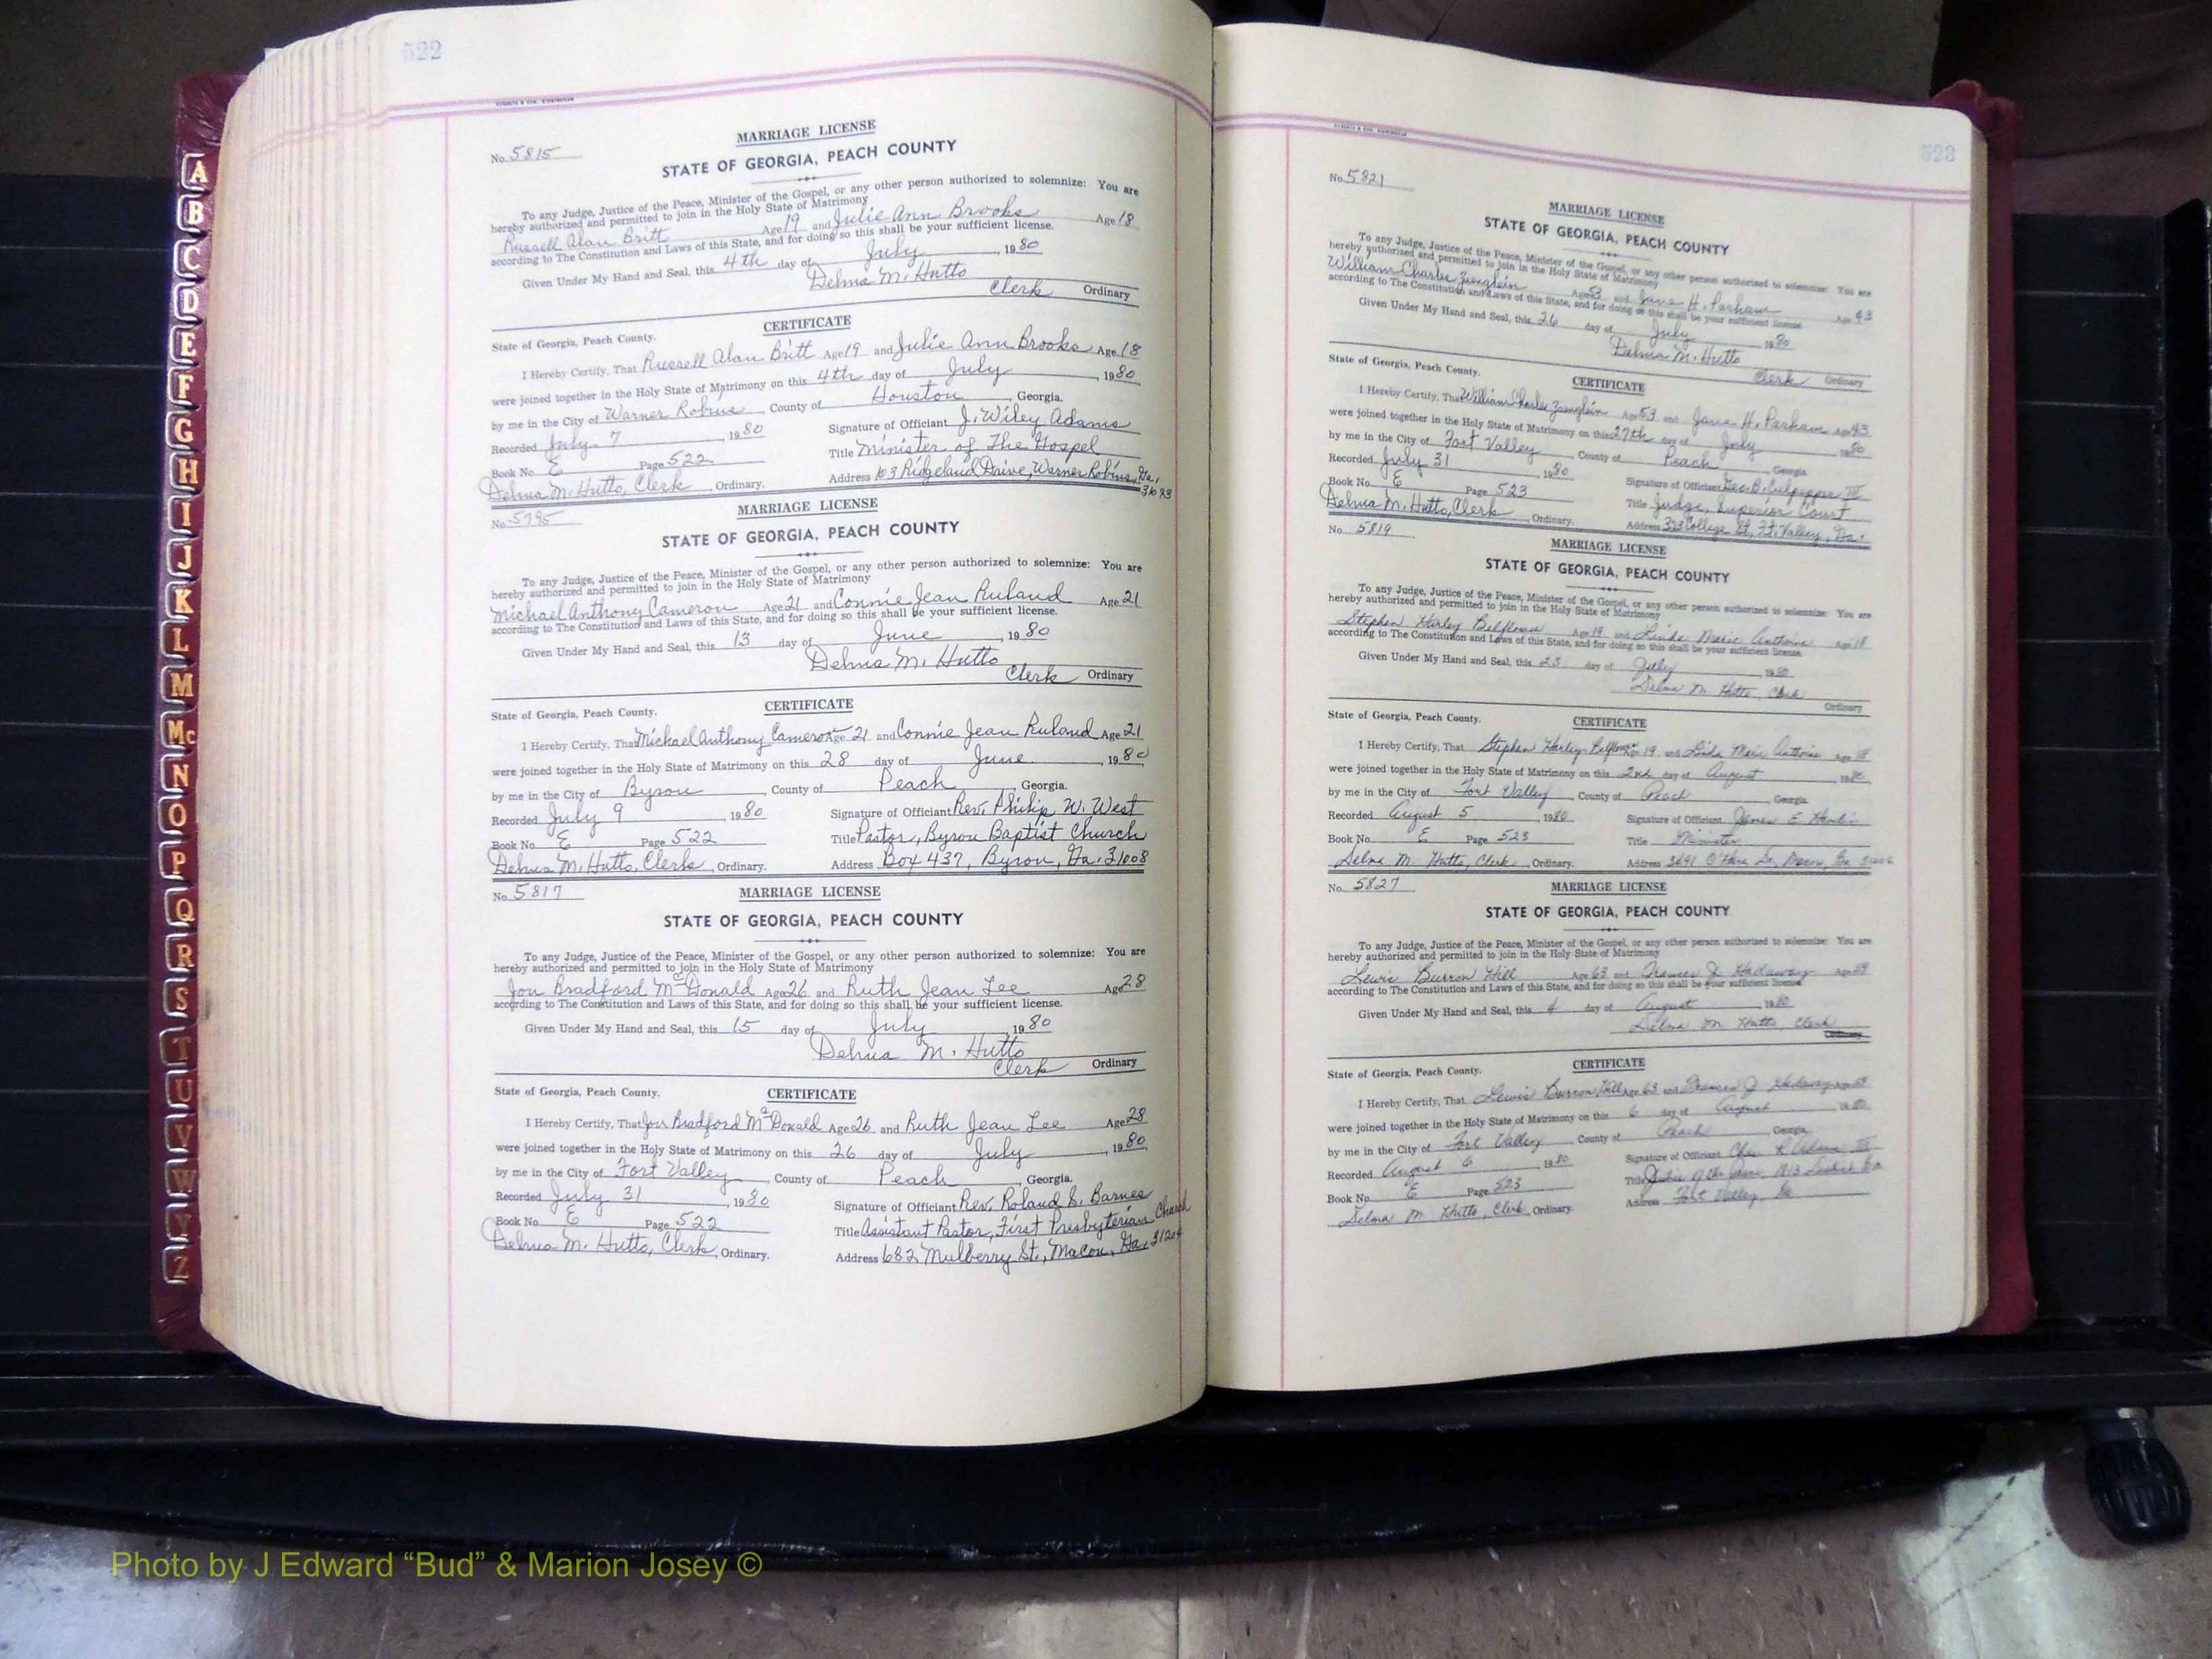 522
MARRIAGE LICENSE
No. 5815
STATE OF GEORGIA, PEACH COUNTY
To any Judge, Justice of the Peace, Minister of the Gospel, or any other person authorized to solemnize: You are
hereby authorized and permitted to join in the Holy State of Matrimony
Russell Alan Britt Age 19 and Julie Ann Brooks Age 18
according to The Constitution and Laws of this State, and for doing so this shall be your sufficient license.
Given Under My Hand and Seal, this 4th day of July, 1980
Delma M. Hutto
Clerk Ordinary
CERTIFICATE
State of Georgia, Peach County.
I Hereby Certify, That Russell Alan Britt Age 19 and Julie Ann Brooks Age 18
were joined together in the Holy State of Matrimony on this 4th day of July, 1980
by me in the City of Warner Robins, County of Houston, Georgia.
Recorded July 7, 1980 Signature of Officiant J. Wiley Adams
Book No. E Page 522 Title Minister of The Gospel
Delma M. Hutto, Clerk, Ordinary. Address 103 Ridgeland Drive, Warner Robins, Ga.
No. 5795
MARRIAGE LICENSE
STATE OF GEORGIA, PEACH COUNTY
To any Judge, Justice of the Peace, Minister of the Gospel, or any other person authorized to solemnize: You are
hereby authorized and permitted to join in the Holy State of Matrimony
Michael Anthony Cameron Age 21 and Connie Jean Ruland Age 21
according to The Constitution and Laws of this State, and for doing so this shall be your sufficient license.
Given Under My Hand and Seal, this 13 day of June, 1980
Delma M. Hutto
Clerk Ordinary
CERTIFICATE
State of Georgia, Peach County.
I Hereby Certify, That Michael Anthony Cameron Age 21 and Connie Jean Ruland Age 21
were joined together in the Holy State of Matrimony on this 28 day of June, 1980
by me in the City of Byron, County of Peach, Georgia.
Recorded July 9, 1980 Signature of Officiant Rev. Philip W. West
Book No. E Page 522 Title Pastor, Byron Baptist Church
Delma M. Hutto, Clerk, Ordinary. Address Box 437, Byron, Ga. 31008
No. 5817
MARRIAGE LICENSE
STATE OF GEORGIA, PEACH COUNTY
To any Judge, Justice of the Peace, Minister of the Gospel, or any other person authorized to solemnize: You are
hereby authorized and permitted to join in the Holy State of Matrimony
Jon Bradford McDonald Age 26 and Ruth Jean Lee Age 28
according to The Constitution and Laws of this State, and for doing so this shall be your sufficient license.
Given Under My Hand and Seal, this 15 day of July, 1980
Delma M. Hutto
Clerk Ordinary
CERTIFICATE
State of Georgia, Peach County.
I Hereby Certify, That Jon Bradford McDonald Age 26 and Ruth Jean Lee Age 28
were joined together in the Holy State of Matrimony on this 26 day of July, 1980
by me in the City of Fort Valley, County of Peach, Georgia.
Recorded July 31, 1980 Signature of Officiant Rev. Roland S. Barnes
Book No. E Page 522 Title Assistant Pastor, First Presbyterian Church
Delma M. Hutto, Clerk, Ordinary. Address 682 Mulberry St., Macon, Ga. 31204
523
No. 5821
MARRIAGE LICENSE
STATE OF GEORGIA, PEACH COUNTY
To any Judge, Justice of the Peace, Minister of the Gospel, or any other person authorized to solemnize: You are
hereby authorized and permitted to join in the Holy State of Matrimony
William Charles Zaenglein Age 53 and Jane H. Parham Age 43
according to The Constitution and Laws of this State, and for doing so this shall be your sufficient license.
Given Under My Hand and Seal, this 26 day of July, 1980
Delma M. Hutto
Clerk Ordinary
CERTIFICATE
State of Georgia, Peach County.
I Hereby Certify, That William Charles Zaenglein Age 53 and Jane H. Parham Age 43
were joined together in the Holy State of Matrimony on this 27th day of July, 1980
by me in the City of Fort Valley, County of Peach, Georgia.
Recorded July 31, 1980 Signature of Officiant Geo. B. Culpepper III
Book No. E Page 523 Title Judge, Superior Court
Delma M. Hutto, Clerk, Ordinary. Address 323 College St, Ft. Valley, Ga.
No. 5819
MARRIAGE LICENSE
STATE OF GEORGIA, PEACH COUNTY
To any Judge, Justice of the Peace, Minister of the Gospel, or any other person authorized to solemnize: You are
hereby authorized and permitted to join in the Holy State of Matrimony
Stephen Harley Belflower Age 19 and Linda Marie Anthoine Age 18
according to The Constitution and Laws of this State, and for doing so this shall be your sufficient license.
Given Under My Hand and Seal, this 23 day of July, 1980
Delma M. Hutto, Clerk
Ordinary
CERTIFICATE
State of Georgia, Peach County.
I Hereby Certify, That Stephen Harley Belflower Age 19 and Linda Marie Anthoine Age 18
were joined together in the Holy State of Matrimony on this 2nd day of August, 1980
by me in the City of Fort Valley, County of Peach, Georgia
Recorded August 5, 1980 Signature of Officiant James E.
Book No. E Page 523 Title Minister
Delma M. Hutto, Clerk, Ordinary. Address 3691 O'Hara Dr., Macon, Ga. 31206
No. 5827
MARRIAGE LICENSE
STATE OF GEORGIA, PEACH COUNTY
To any Judge, Justice of the Peace, Minister of the Gospel, or any other person authorized to solemnize: You are
hereby authorized and permitted to join in the Holy State of Matrimony
Lewis Burron Hill Age 63 and Frances J. Hadaway Age 59
according to The Constitution and Laws of this State, and for doing so this shall be your sufficient license
Given Under My Hand and Seal, this 4 day of August, 1980
Delma M. Hutto, Clerk
Ordinary
CERTIFICATE
State of Georgia, Peach County.
I Hereby Certify, That Lewis Burron Hill Age 63 and Frances J. Hadaway Age 59
were joined together in the Holy State of Matrimony on this 6 day of August, 1980
by me in the City of Fort Valley, County of Peach, Georgia.
Recorded August 6, 1980 Signature of Officiant
Book No. E Page 523 Title Justice of the Peace
Delma M. Hutto, Clerk, Ordinary. Address Fort Valley, Ga
A
B
C
D
E
F
G
H
I
J
K
L
M
Mc
N
O
P
Q
R
S
T
U
V
W
Y
Z
Photo by J Edward “Bud” & Marion Josey ©